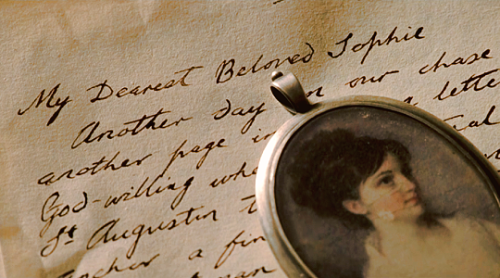 My Dearest Beloved Sophie
Another day in our chase
another page in a lette
God-willing whe tical
St Augustin t
a fin